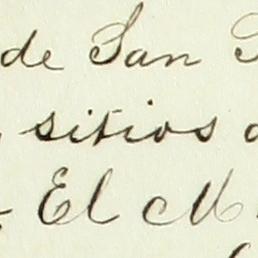 de San
sitios
El M